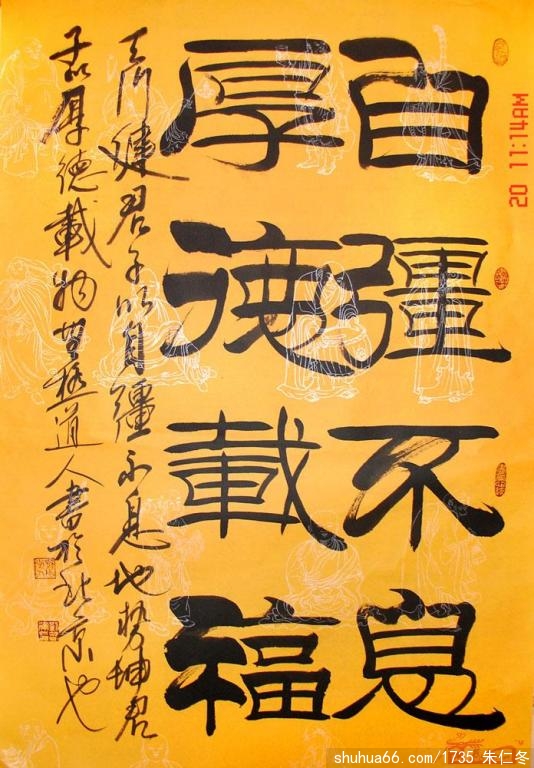 自彊不息
厚德載福
天行健君子以自彊不息地势坤君
子以厚德載物無極道人書於北京也
20 11:14AM
shuhua66.com/1735 朱仁冬